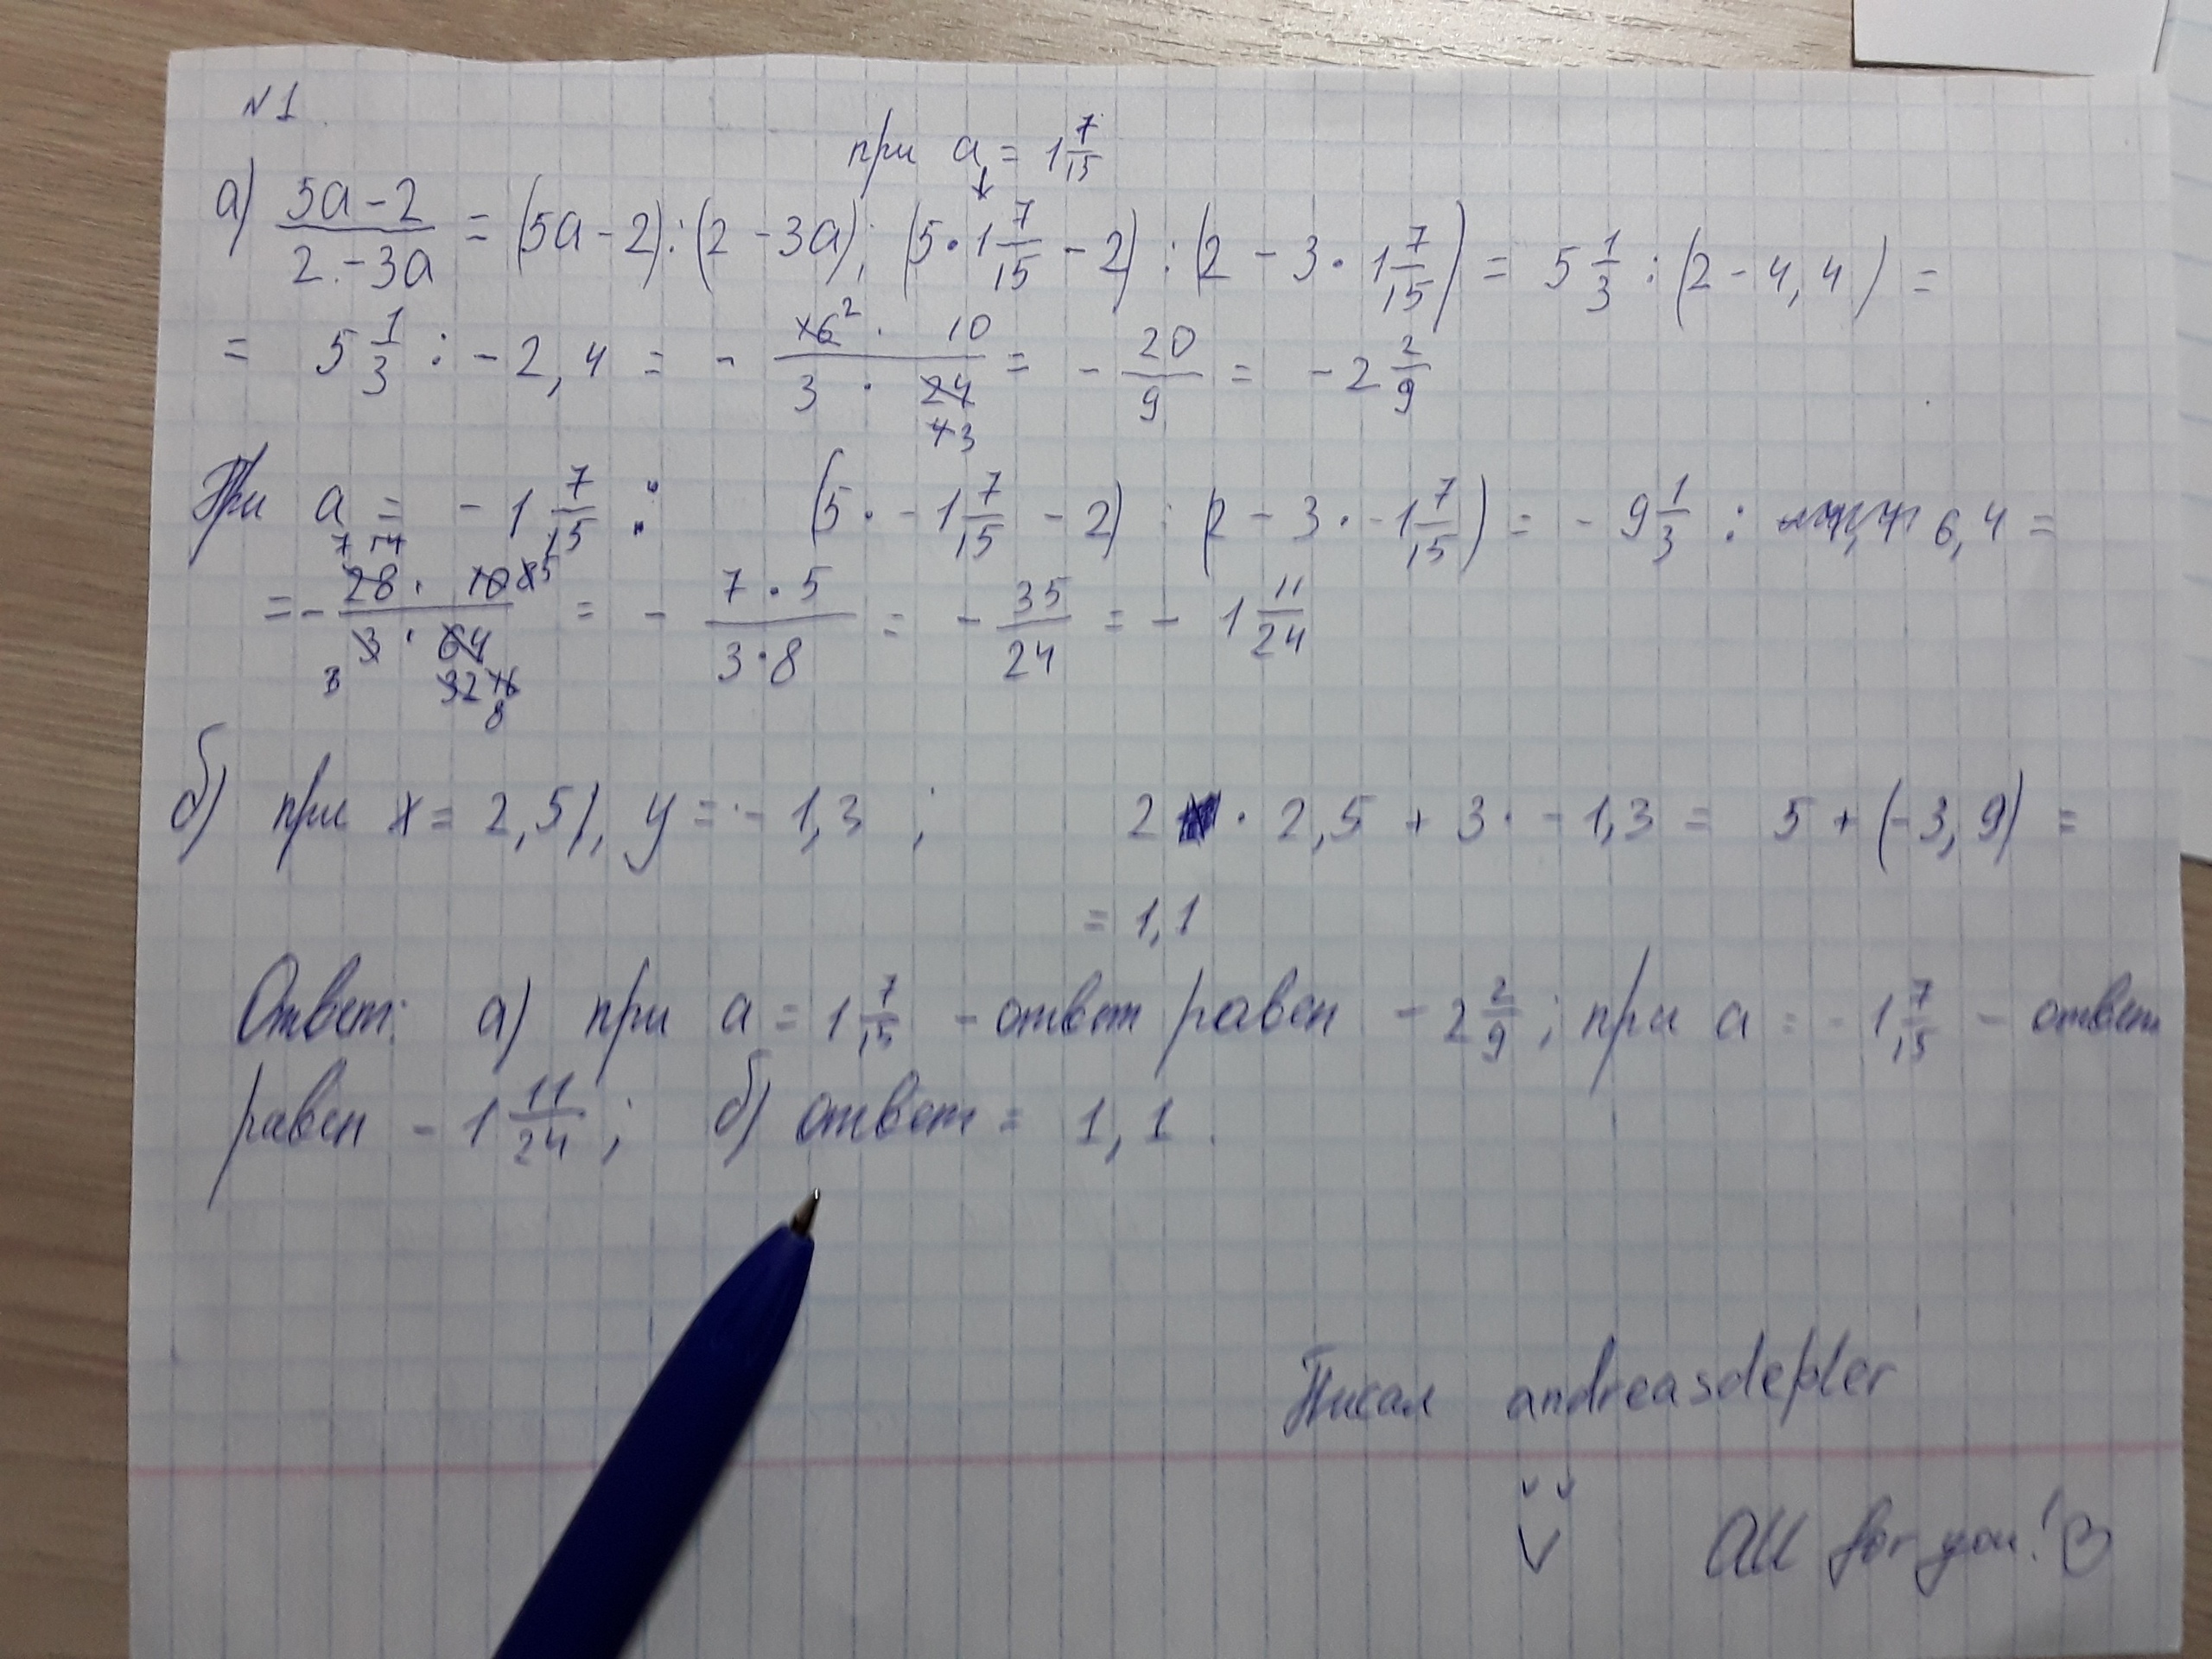 №1
при a = 1 7/15
а) (5a-2)/(2-3a) = (5a-2):(2-3a); (5·1 7/15 - 2) : (2 - 3·1 7/15) = 5 1/3 : (2 - 4,4) =
= 5 1/3 : -2,4 = - (16² · 10)/(3 · 24 43) = - 20/9 = -2 2/9
При a = -1 7/15 : (5 · -1 7/15 - 2) : (2 - 3 · -1 7/15) = -9 1/3 : 6,4 =
= - (28 · 10)/(3 · 64) = - (7·5)/(3·8) = - 35/24 = - 1 11/24
б) при x = 2,5, y = -1,3 ; 2 · 2,5 + 3 · -1,3 = 5 + (-3,9) =
= 1,1
Ответ: а) при a = 1 7/15 - ответ равен -2 2/9; при a = -1 7/15 - ответ
равен -1 11/24; б) ответ = 1,1.
Писал andreasdepler
All for you!